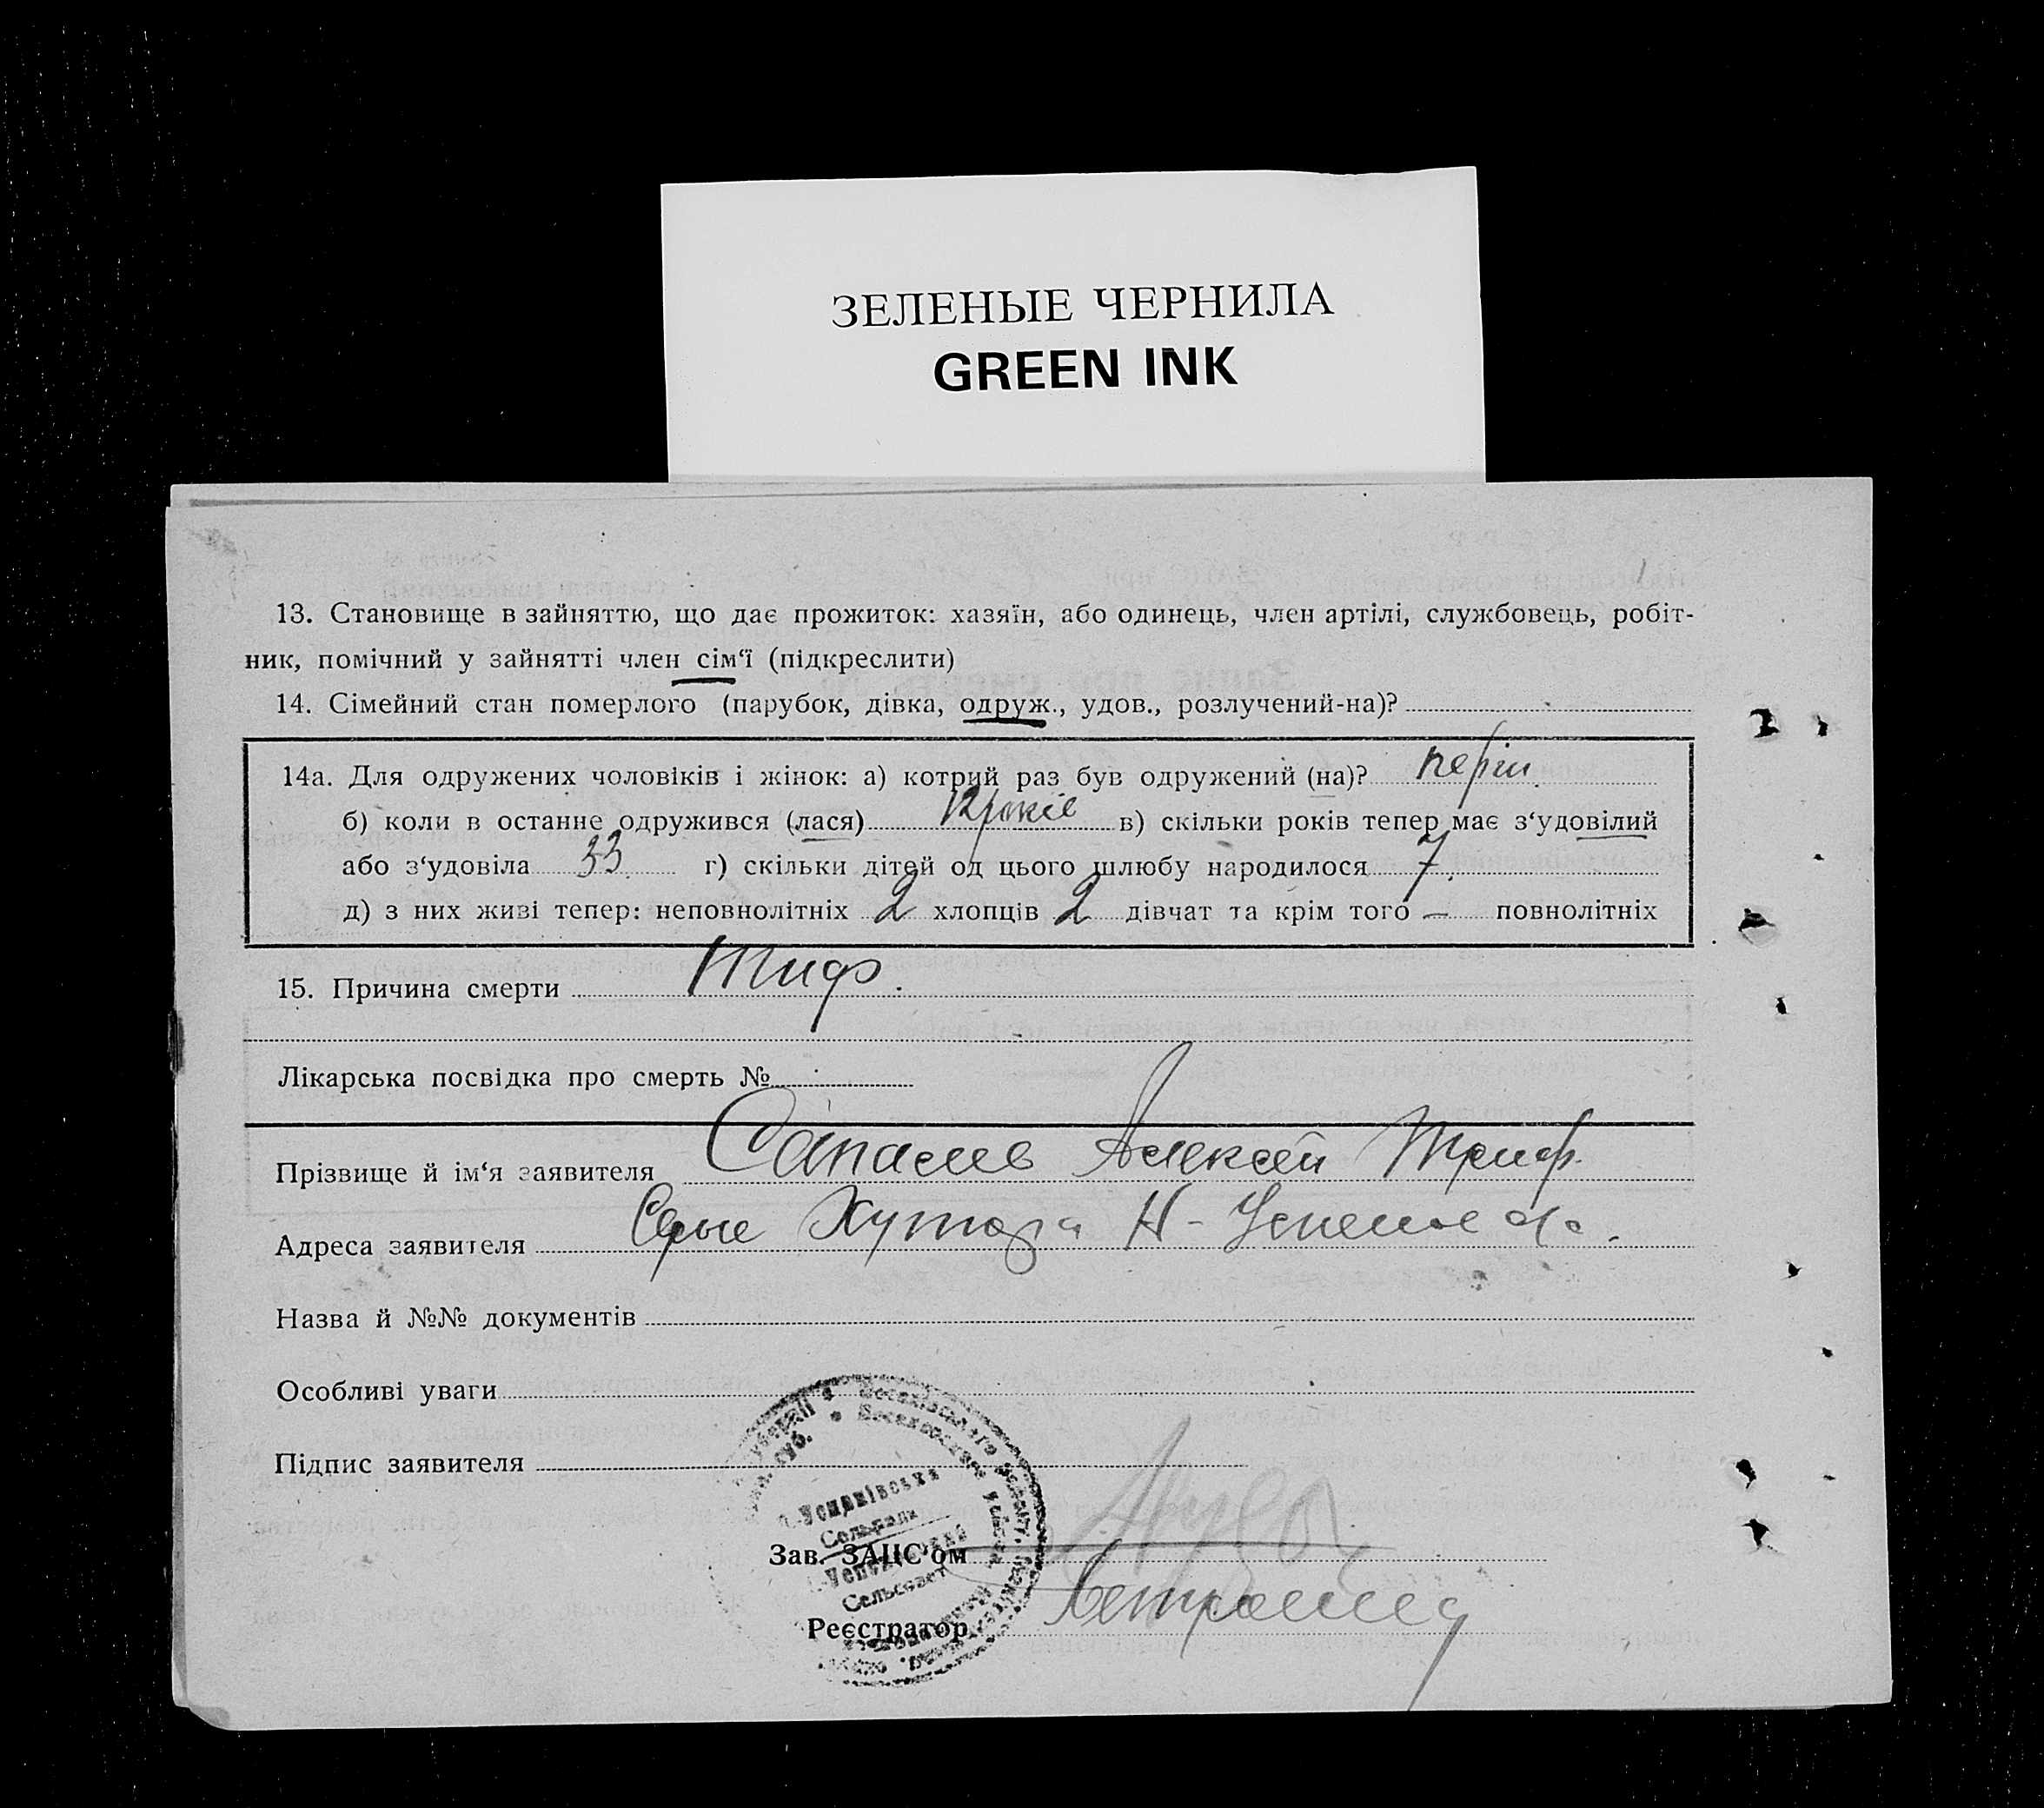 ЗЕЛЕНЫЕ ЧЕРНИЛА
GREEN INK
13. Становище в зайняттю, що дає прожиток: хазяїн, або одинець, член артілі, службовець, робіт-
ник, помічний у зайнятті член сім'ї (підкреслити)
14. Сімейний стан померлого (парубок, дівка, одруж., удов., розлучений-на)?
14а. Для одружених чоловіків і жінок: а) котрий раз був одружений (на)? перш.
б) коли в останнє одружився (лася) 12 років в) скільки років тепер має з'удовілий
або з'удовіла 33 г) скільки дітей од цього шлюбу народилося 7.
д) з них живі тепер: неповнолітніх 2 хлопців 2 дівчат та крім того — повнолітніх
15. Причина смерти Тиф.
Лікарська посвідка про смерть №
Прізвище й ім'я заявителя Алексей Триф.
Адреса заявителя Хутора Н-
Назва й №№ документів
Особливі уваги
Підпис заявителя
Сельрада
Зав. ЗАЦС'ом
Сельсовет
Реєстратор